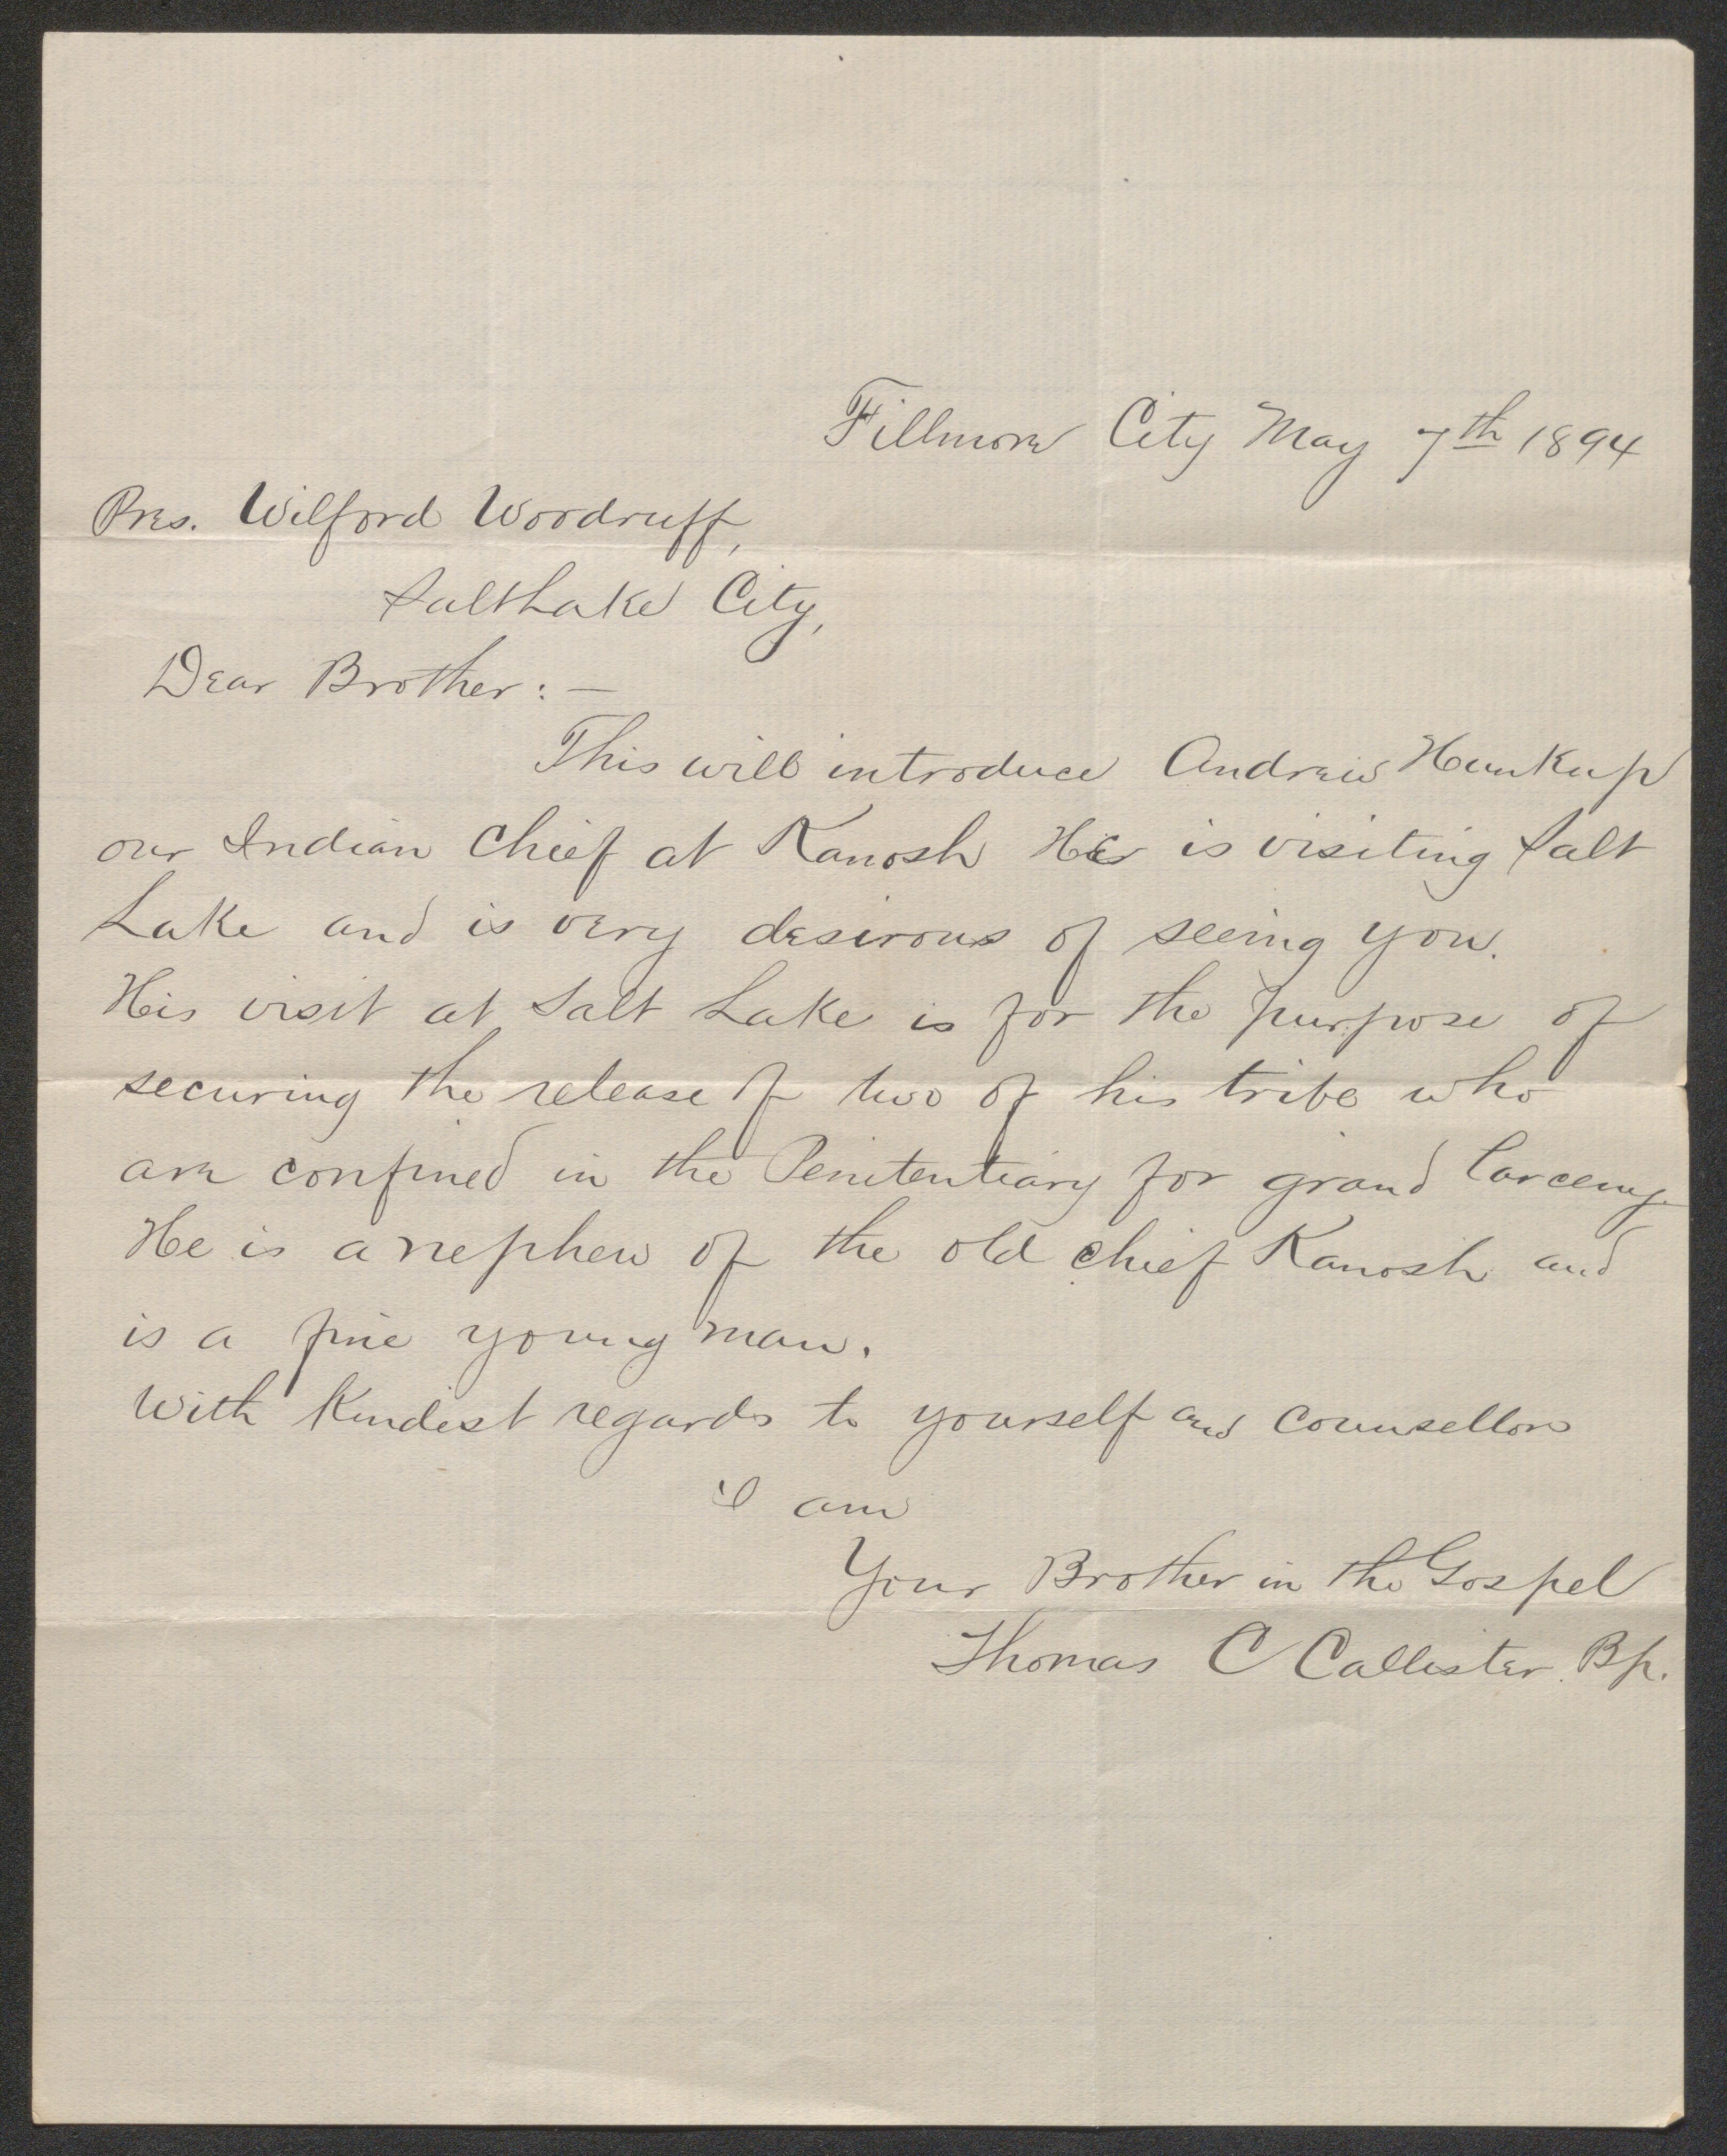 Fillmore City May 7th 1894
Pres. Wilford Woodruff,
SaltLake City,
Dear Brother: —
This will introduce Andrew Hunkup
our Indian Chief at Kanosh He is visiting Salt
Lake and is very desirous of seeing you.
His visit at Salt Lake is for the purpose of
securing the release of two of his tribe who
are confined in the Penitentiary for grand larceny.
He is a nephew of the old chief Kanosh and
is a fine young man.
With Kindest regards to yourself and counsellors
I am
Your Brother in the Gospel
Thomas C Callister Bp.